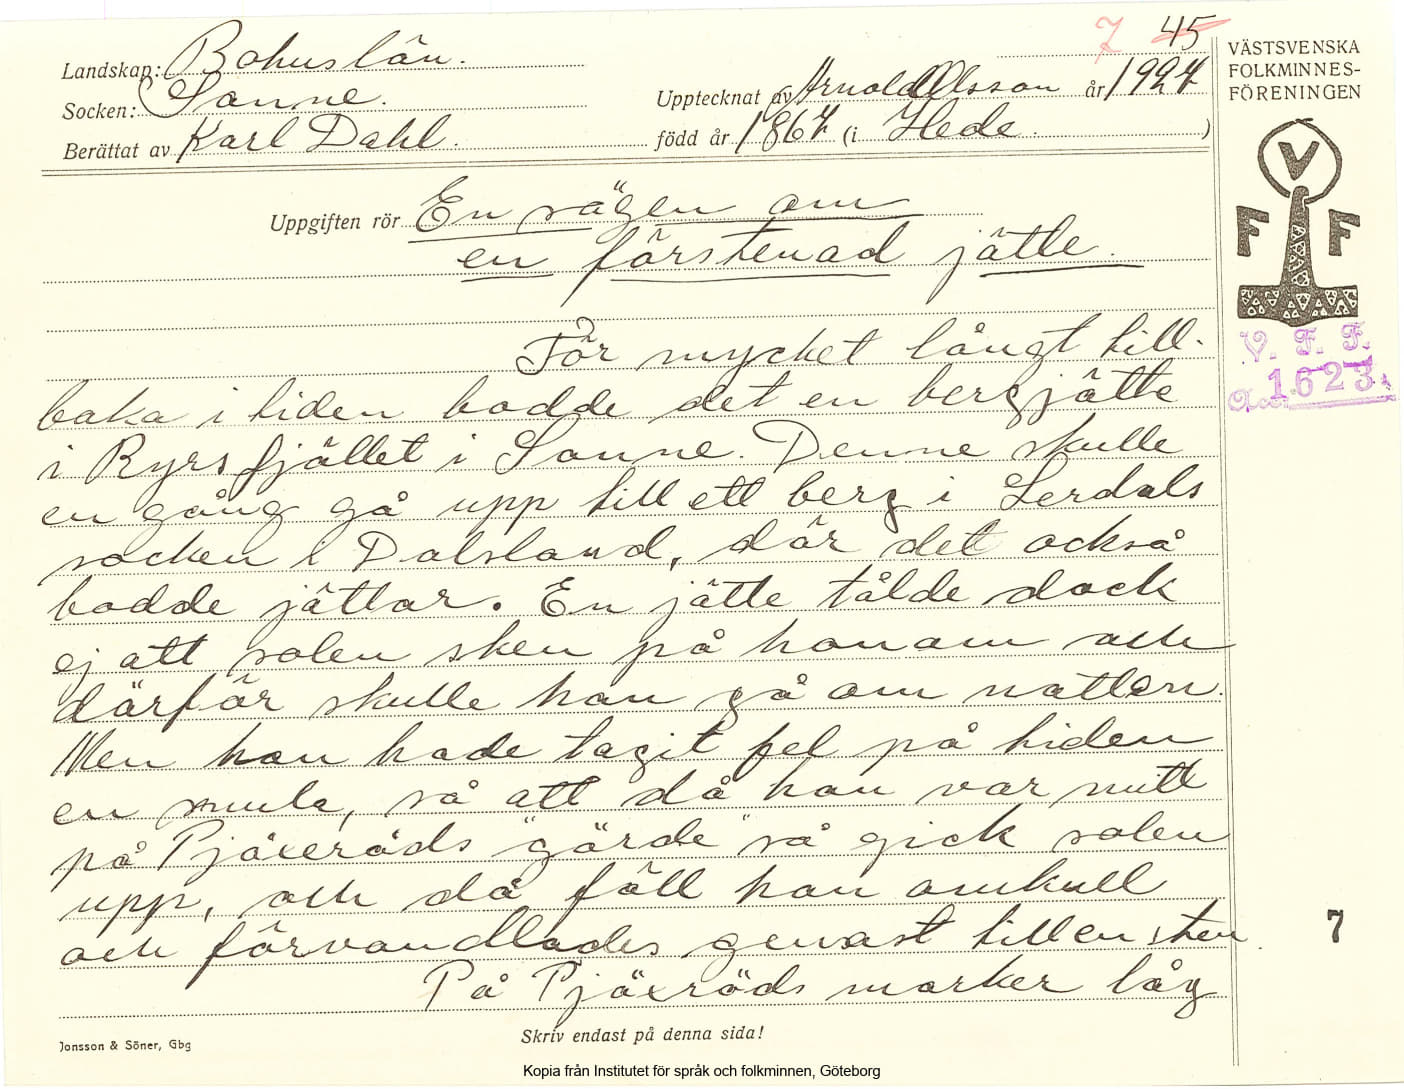 7 45
Landskap: Bohuslän.
Socken: Sanne.
Berättat av Karl Dahl.
Upptecknat av Arnold Olsson år 1927
född år 1867 (i Hede.)
VÄSTSVENSKA
FOLKMINNES-
FÖRENINGEN
V
F F
V. F. F.
Acc. 1623.
Uppgiften rör En sägen om
en förstenad jätte.
För mycket långt till-
baka i tiden bodde det en bergjätte
i Ryrsfjället i Sanne. Denne skulle
en gång gå upp till ett berg i Lerdals
socken i Dalsland, där det också
bodde jättar. En jätte tålde dock
ej att solen sken på honom och
därför skulle han gå om natten.
Men han hade tagit fel på tiden
en smula, så att då han var mitt
på Pjäxeröds "gärde" så gick solen
upp, och då föll han omkull
och förvandlades genast till en sten.
På Pjäxröds marker låg
7
Jonsson & Söner, Gbg
Skriv endast på denna sida!
Kopia från Institutet för språk och folkminnen, Göteborg